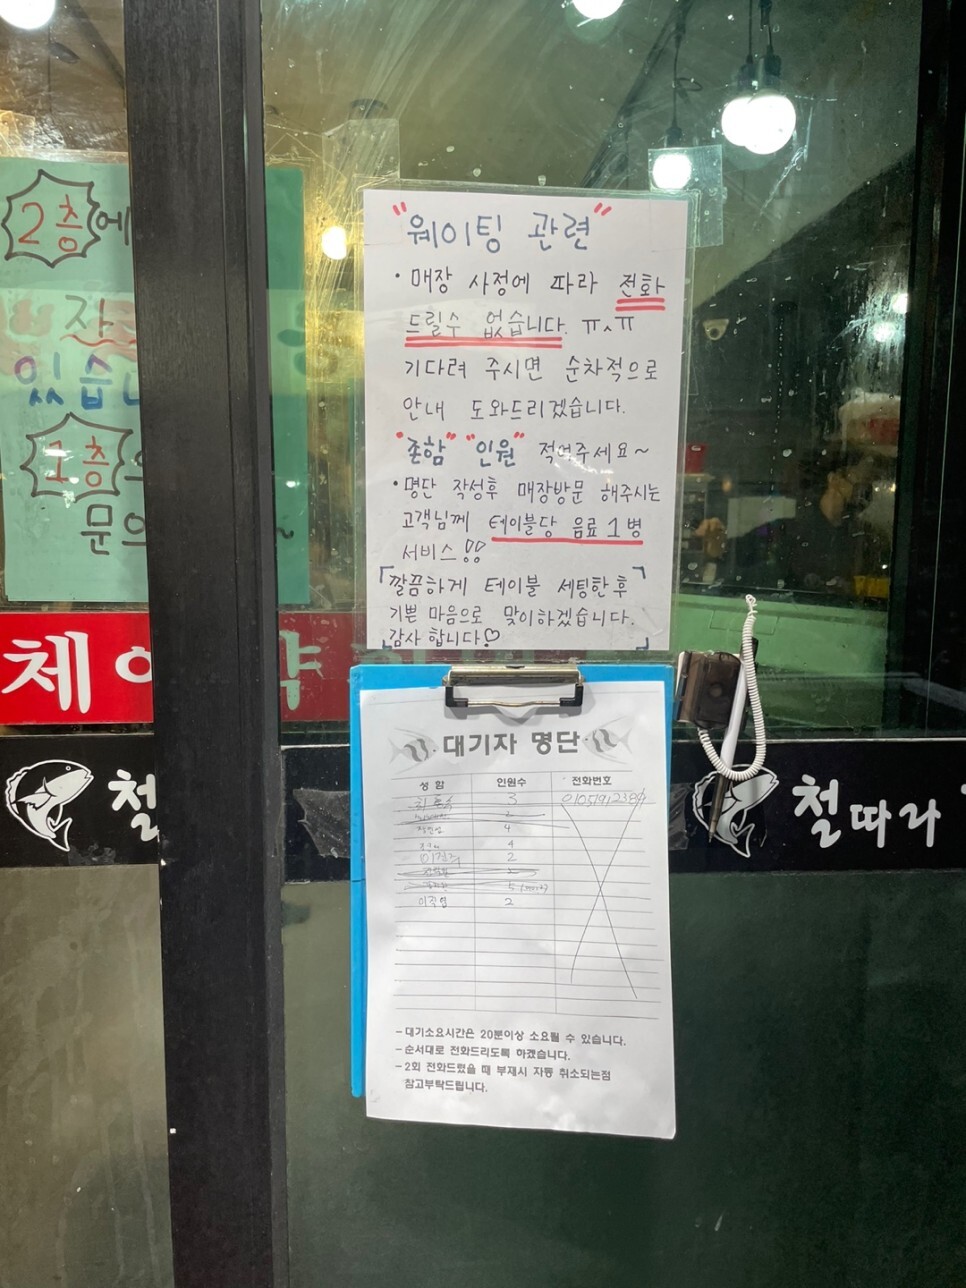 2층에
자
있습니
1층
문의
"웨이팅 관련"
· 매장 사정에 따라 전화
드릴수 없습니다. ㅠ^ㅠ
기다려 주시면 순차적으로
안내 도와드리겠습니다.
"존함" "인원" 적어주세요~
· 명단 작성후 매장방문 해주시는
고객님께 테이블당 음료 1병
서비스!!
깔끔하게 테이블 세팅한 후
기쁜 마음으로 맞이하겠습니다.
감사합니다♡
체
철
철따라
대기자 명단
성 함 인원수 전화번호
3
4
4
2
5
2
- 대기소요시간은 20분이상 소요될 수 있습니다.
- 순서대로 전화드리도록 하겠습니다.
- 2회 전화드렸을 때 부재시 자동 취소되는점
참고부탁드립니다.